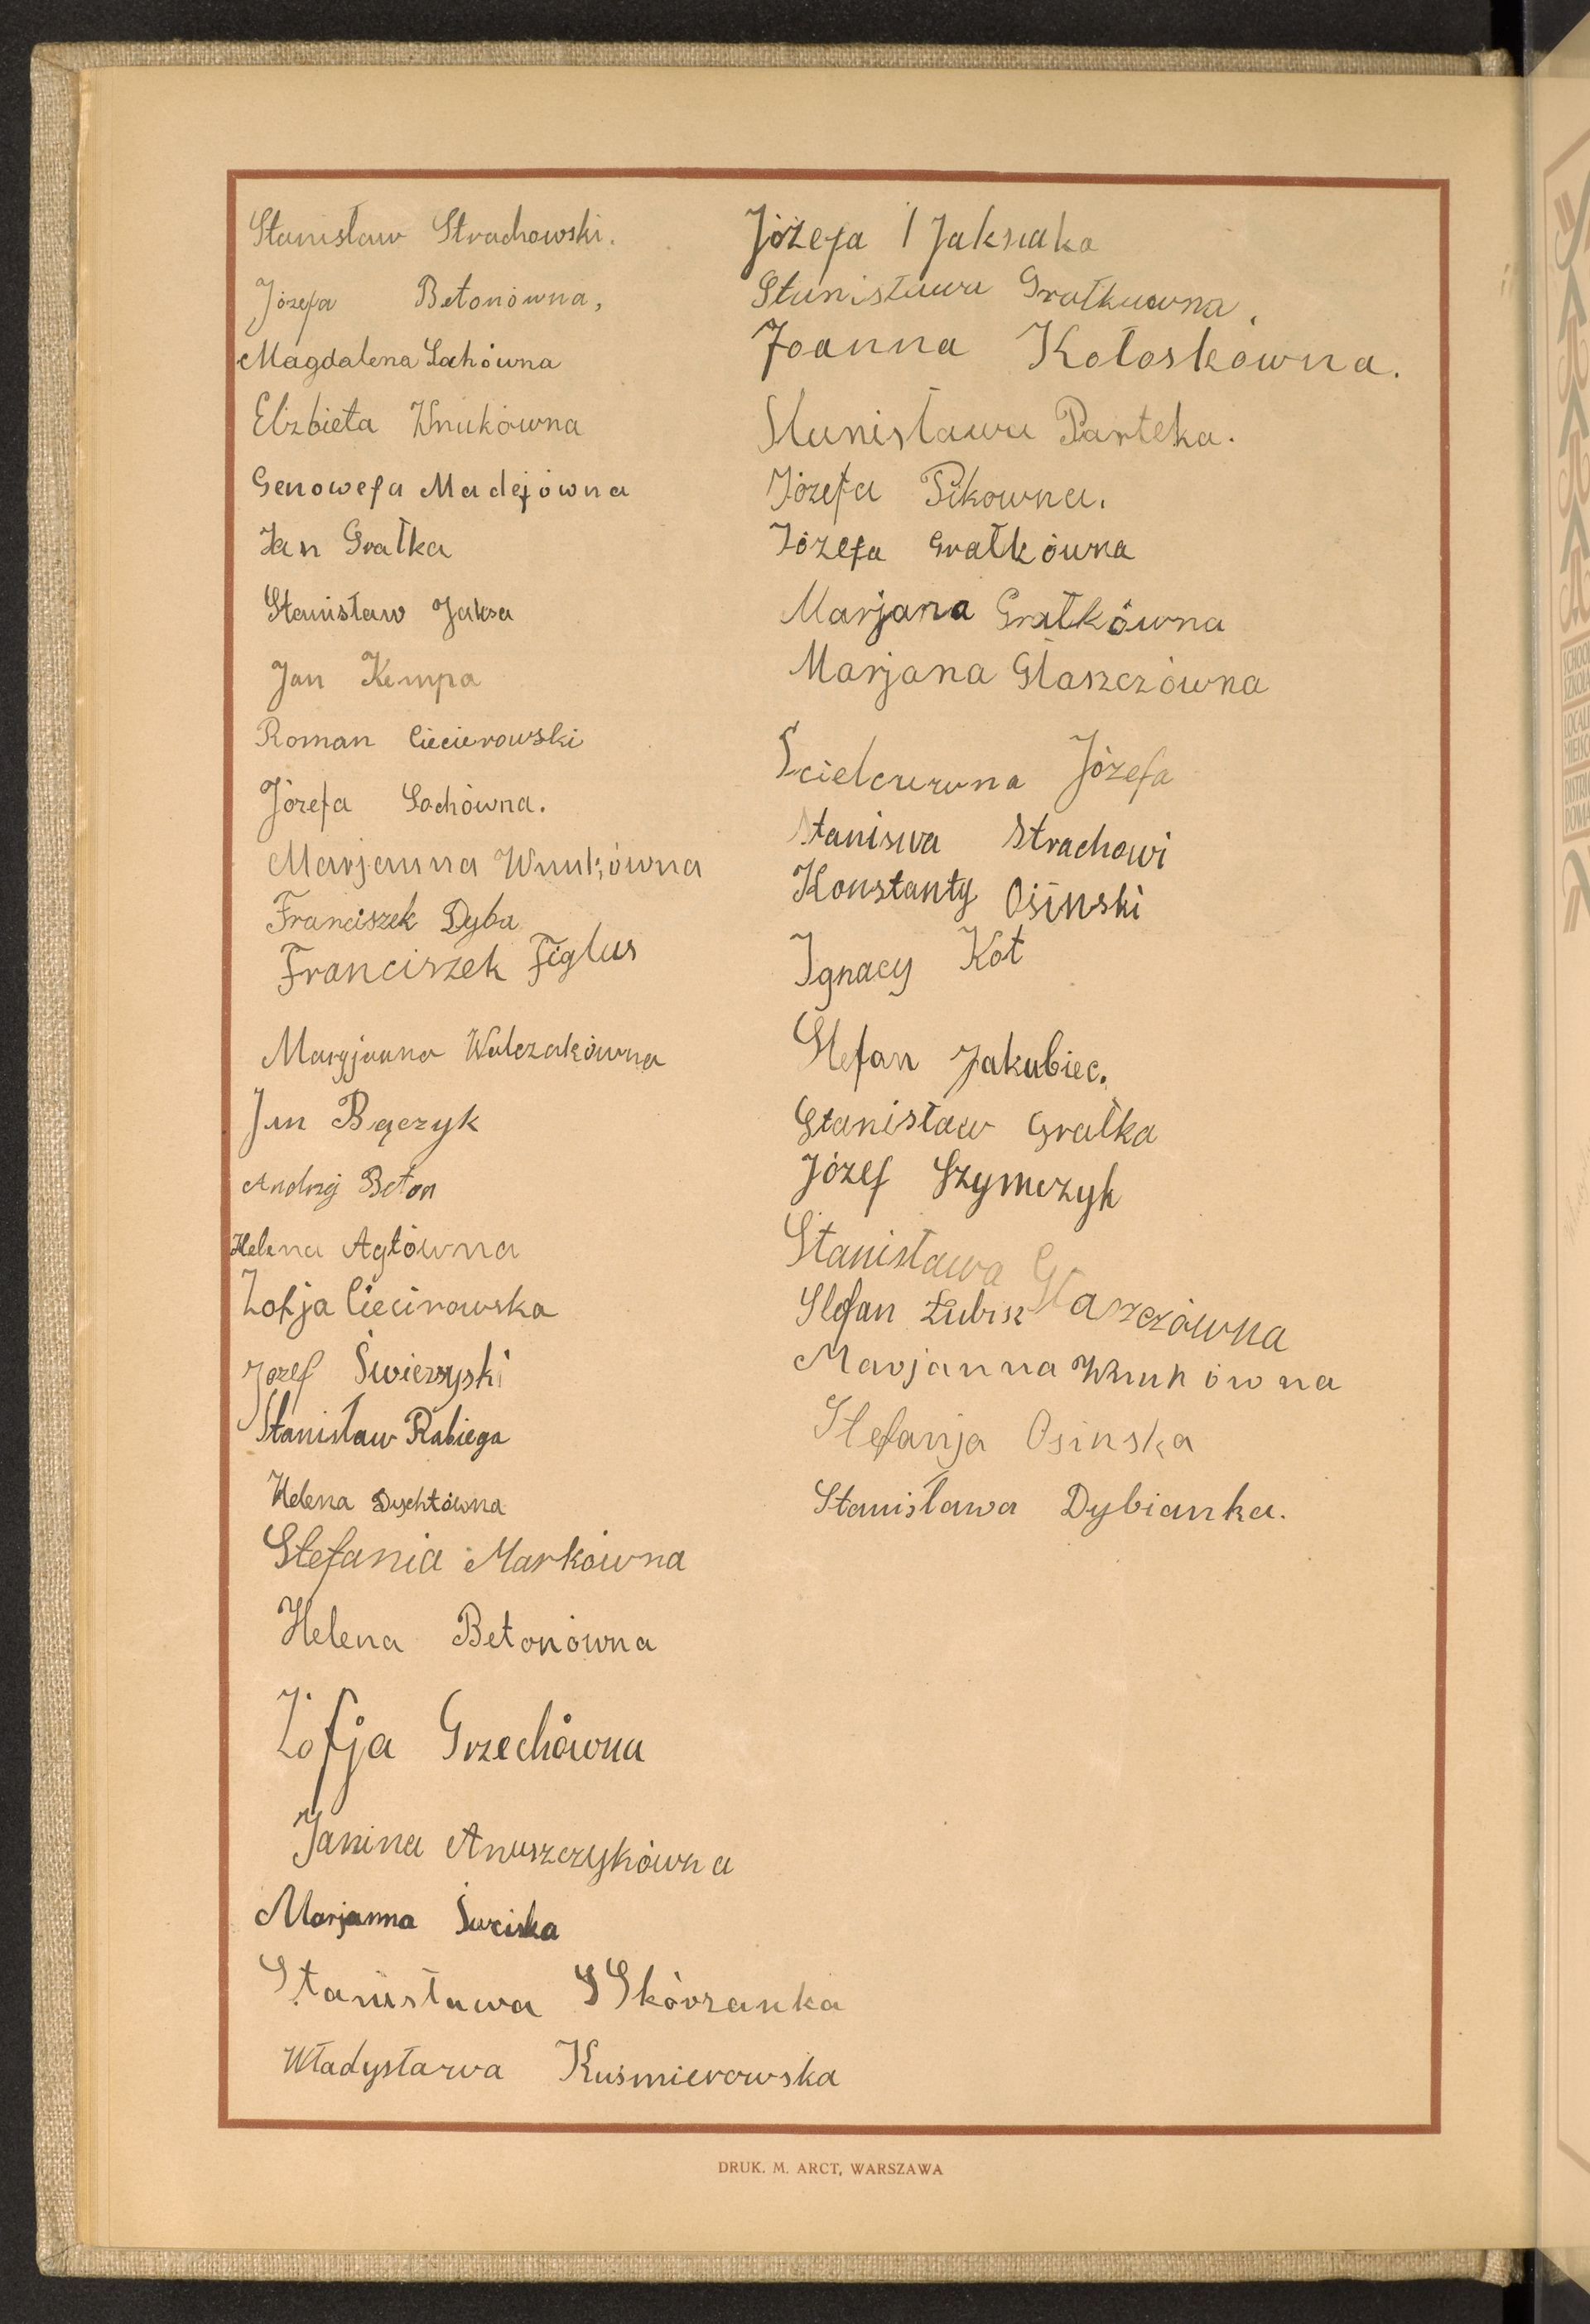 Stanisław Strachowski.
Józefa Betonówna,
Magdalena Lachówna
Elżbieta Wnukówna
Genowefa Madejówna
Jan Grałka
Stanisław Jaksa
Jan Kempa
Roman Ciecierowski
Józefa Lachówna.
Marjanna Wnukówna
Franciszek Dyba
Franciszek Figlus
Maryjanna Walczakówna
Jan Bączyk
Andrzej Beton
Helena Agłówna
Zofja Ciecirowska
Józef Świerzyski
Stanisław Rabiega
Helena Dychtówna
Stefania Markówna
Helena Betonówna
Zofja Grzechówna
Janina Anuszczykówna
Marjanna
Stanisława SSkórzanka
Władysława Kuśmierowska
Józefa Jaksiaka
Stanisława Grałkuwna,
Joanna Kołoskówna.
Stanisława Parteka.
Józefa Pikowna.
Józefa Grałkówna
Marjana Grałkówna
Marjana Głaszczówna
Józefa
Staniswa Strachowi
Konstanty Osiński
Ignacy Kot
Stefan Jakubiec.
Stanisław Grałka
Józef Szymczyk
Stanisława Głaszczówna
Stefan Łubik
Marjanna Wnukówna
Stefanja Osinska
Stanisława Dybianka.
DRUK. M. ARCT, WARSZAWA